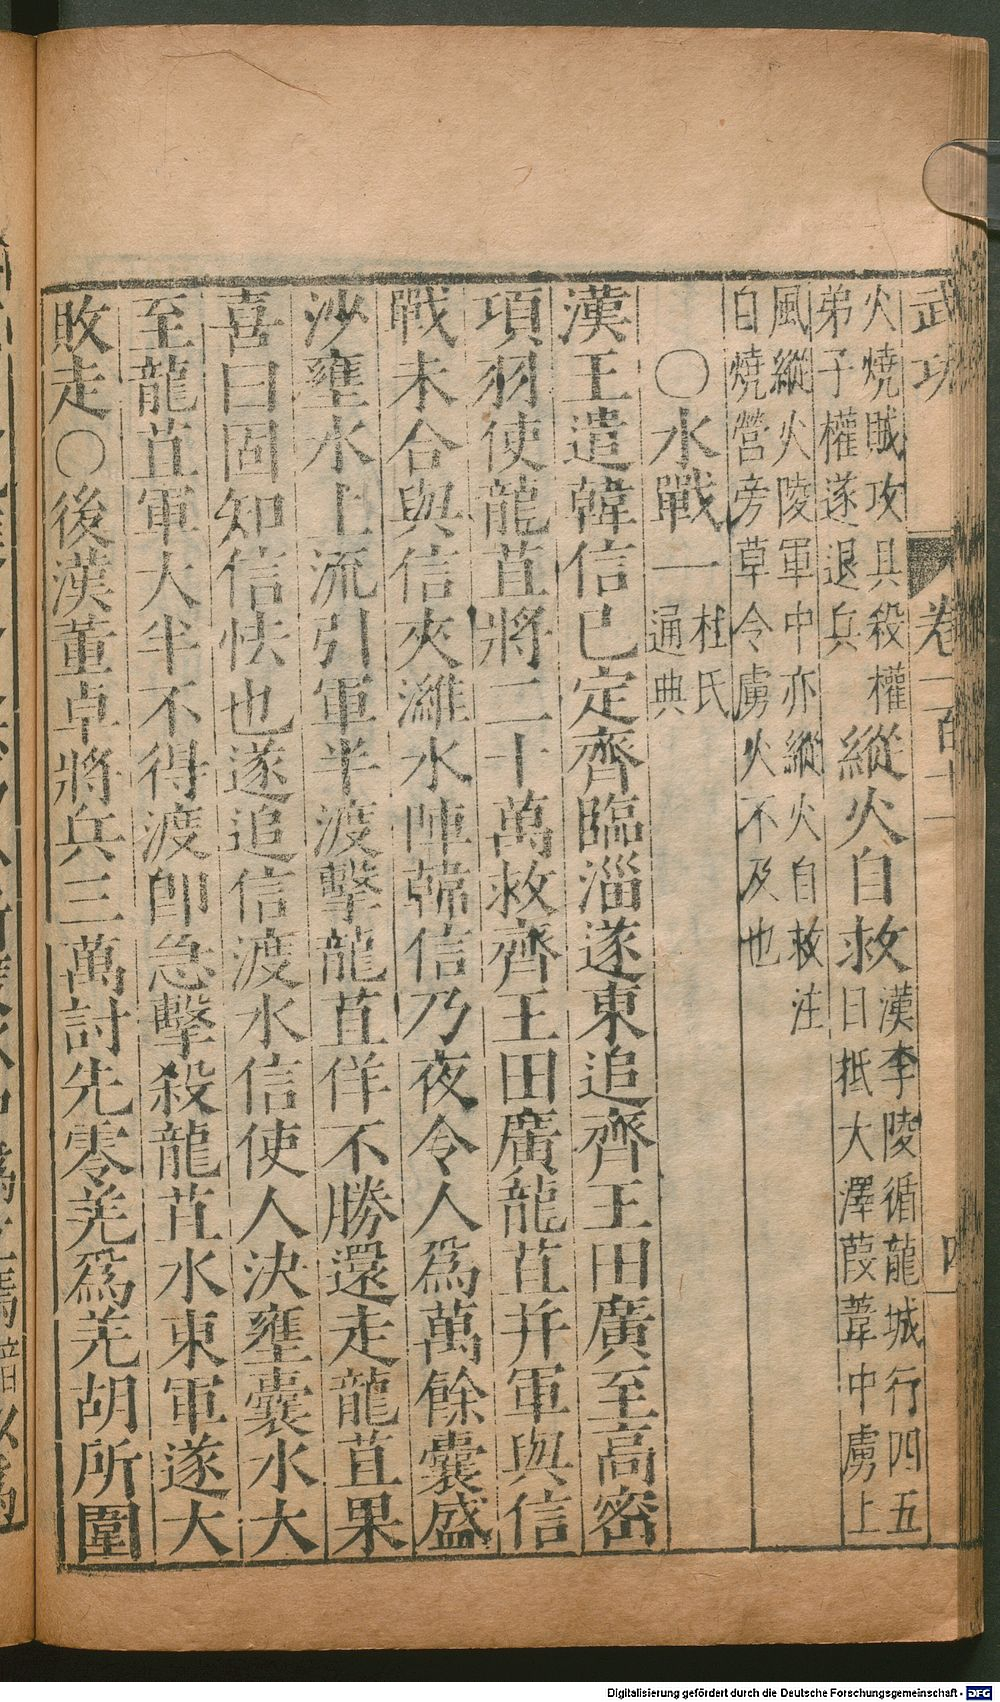 武功 卷二百十一 四
火燒賊攻具殺權
弟子權遂退兵
縱火自救
漢李陵循龍城行四五
日抵大澤葭葦中虜上
風縱火陵軍中亦縱火自救注
白燒營旁草令虜火不及也
○水戰一
杜氏
通典
漢王遣韓信已定齊臨淄遂東追齊王田廣至高密
項羽使龍苴將二十萬救齊王田廣龍苴并軍與信
戰未合與信夾濰水陣韓信乃夜令人爲萬餘囊盛
沙壅水上流引軍半渡擊龍苴佯不勝還走龍苴果
喜曰固知信怏也遂追信渡水信使人決壅囊水大
至龍苴軍大半不得渡即急擊殺龍苴水東軍遂大
敗走○後漢董卓將兵三萬討先零羌爲羌胡所圍
Digitalisierung gefördert durch die Deutsche Forschungsgemeinschaft - DFG